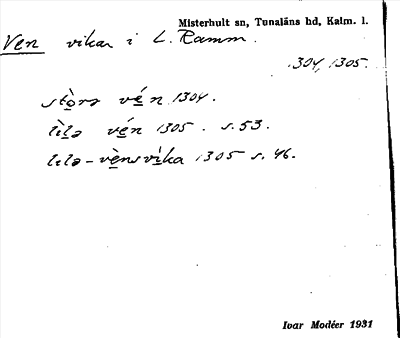 Misterhult sn, Tunaläns hd, Kalm. l.
Ven vikar i L. Ramm.
1304, 1305.
stòrə vé̱n 1304.
lìlə vé̱n 1305. s. 53.
lɩlə-vè̱nsvi̱ka 1305 s. 46.
Ivar Modéer 1931